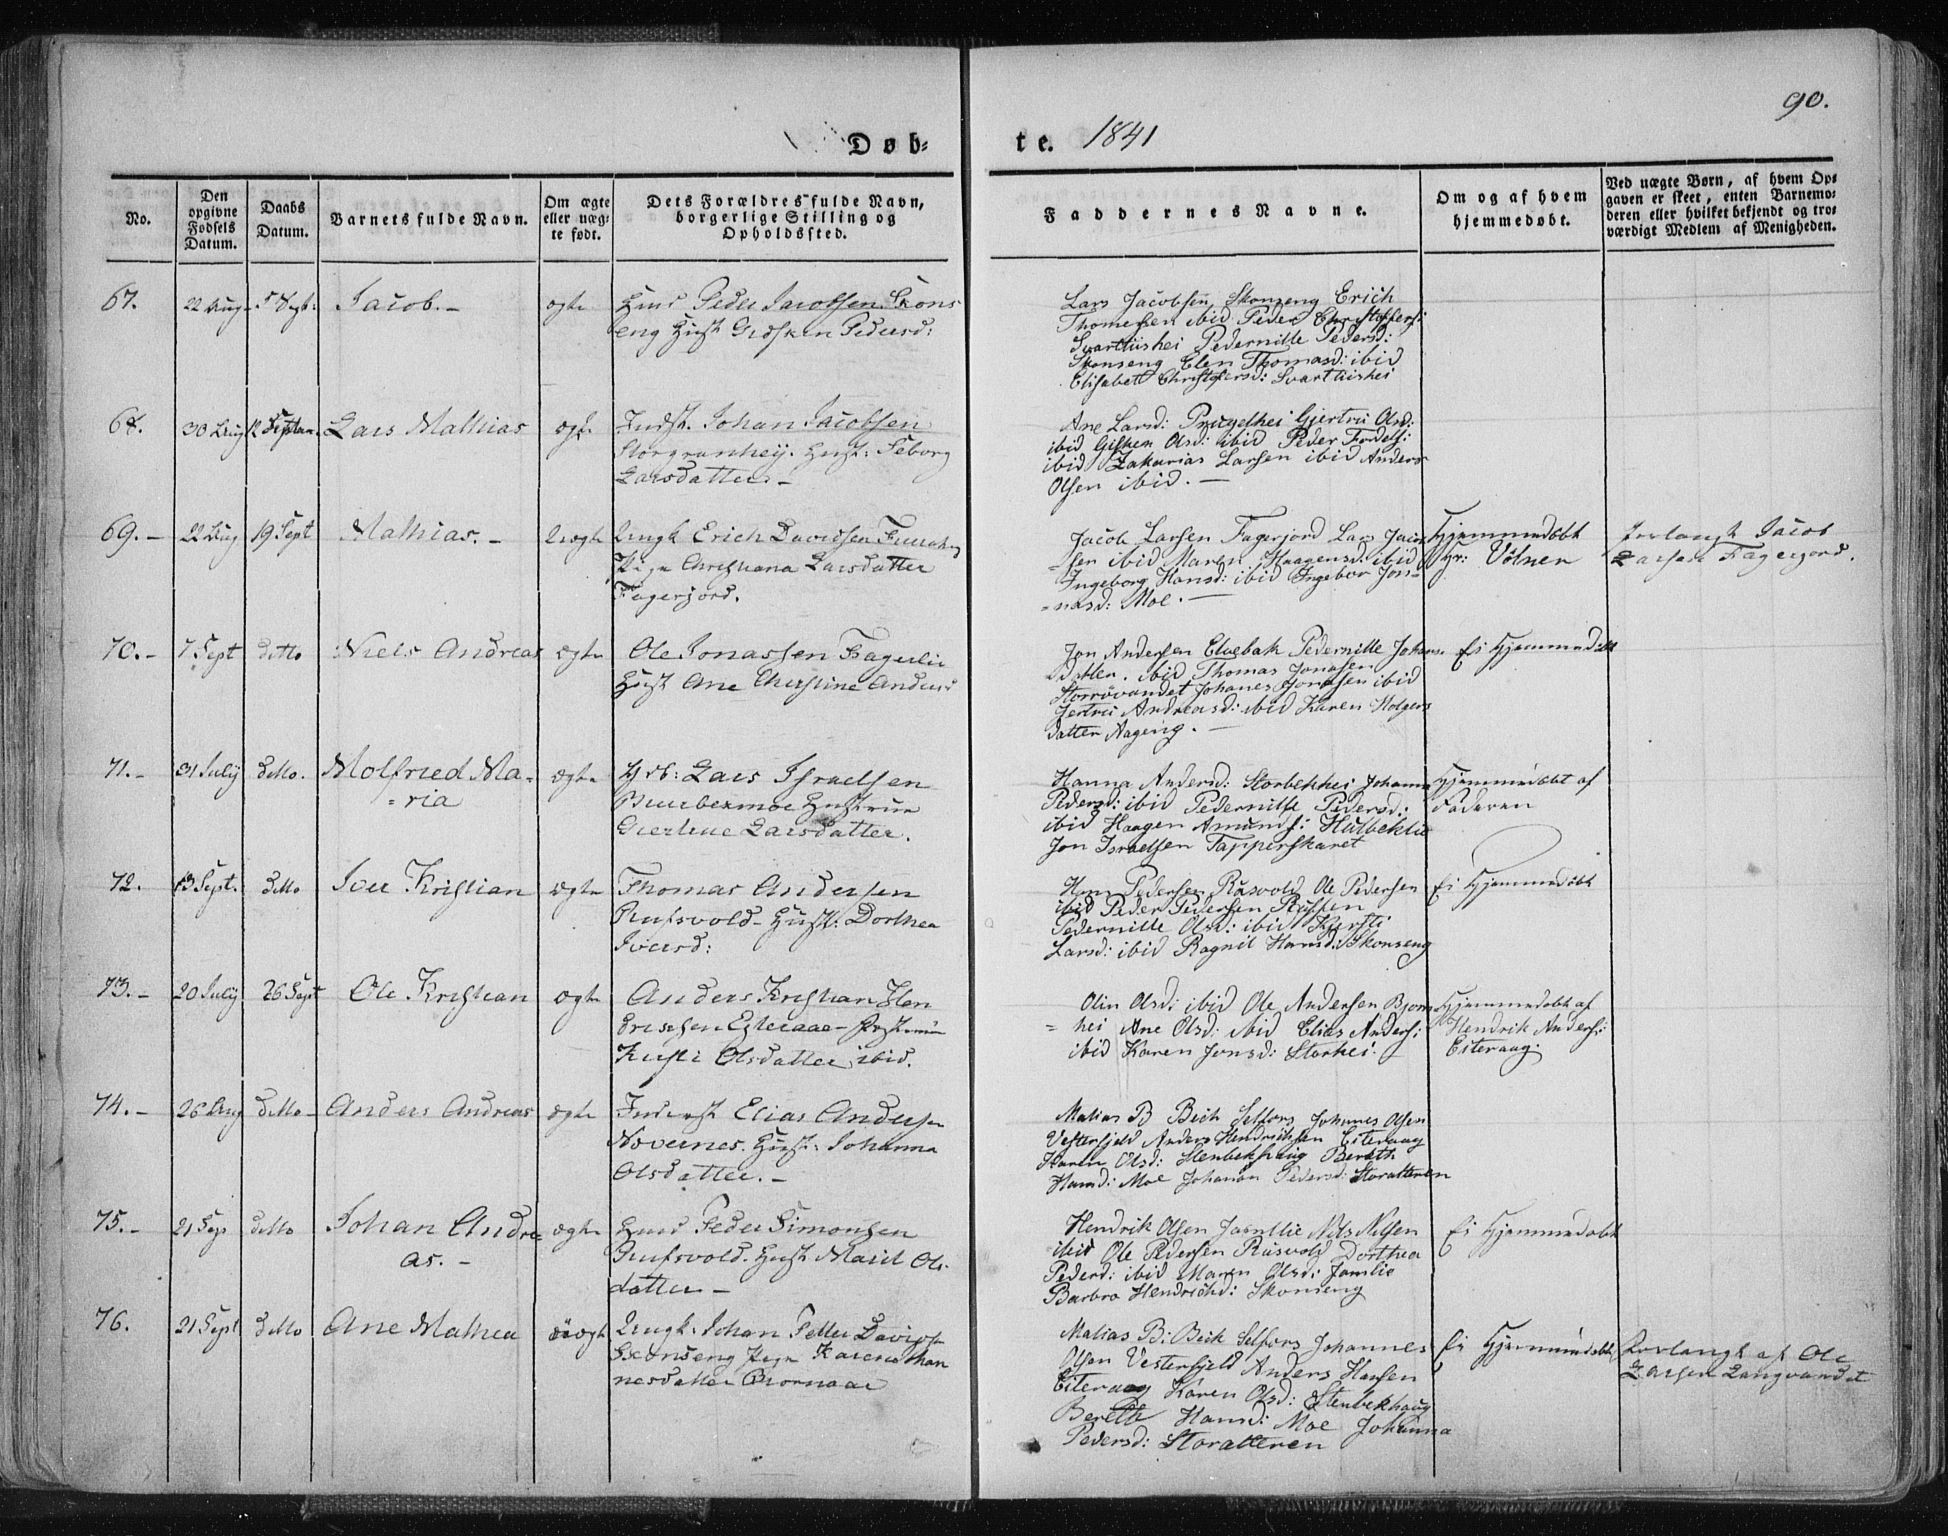 90.
Døb-
te. 1841
No.
Den
opgivne
Fødsels
Datum.
Daabs
Datum.
Barnets fulde Navn.
Om ægte
eller uæg-
te født.
Dets Forældres fulde Navn,
borgerlige Stilling og
Opholdssted.
Faddernes Navne.
Om og af hvem
hjemmedøbt.
Ved uægte Børn, af hvem Op-
gaven er skeet, enten Barnemo-
deren eller hvilket bekjendt og tro-
værdigt Medlem af Menigheden.
67.
22 Aug
5 Sept:
Jacob. -
ægte
Huus Peder Jacobsen Skons
eng Hust Gidsken Pedersd:
Lars Jacobsen Skonseng Erich
Thomesen ibid Peder Christoffers:
Svartiishei Pedernille Pedersd:
Skonseng Elen Thomasd: ibid
Elisabeth Christofersd: Svartiishei
68.
30 Aug
12 Septem.
Lars Mathias
ægte
Indst. Johan Jacobsen
Storgranhey. Hust: Feborg
Larsdatter. -
Ane Larsd: Prugelhei Gjertru Olsd:
ibid Gisken Olsd: ibid Peder
ibid Zakarias Larsen ibid Anders
Olsen ibid. -
69. -
22 Aug
19 Sept
Mathias. -
uægte
Ungk Erich Davidsen
Pige Christiana Larsdatter
Fagerjord.
Jacob Larsen Fagerjord Lars Jacob
-sen ibid Maren Haagensd: ibid
Ingeborg Hansd: ibid Ingebor Jon-
-nasd: Moe. -
Hjemmedøbt
Hr: Volner
forlangt Jacob
Larsen Fagerjord.
70. -
7 Sept
ditto
Niels Andreas
ægte
Ole Jonassen Fagerlie
Hust Ane Cherstine Andersd
Jon Andersen Elvebak Pedernille Johans
Datter. ibid Thomas Jonasen
Storrøvandet Johanes Jonasen ibid
Jertru Andreasd: ibid Karen Holgers
datter Aageng. -
Ei Hjemmedøbt
71. -
31 July
ditto.
Molfried Ma-
-ria
ægte
Lars Israelsen
Hustrue
Larsdatter.
Hanna Andersd: Storbekhei Johanna
Pedersd: ibid Pedernille Pedersd:
ibid Haagen Amunds: Holbeklie
Jon Israelsen Tapperskaret
Hjemmedøbt af
Faderen
72.
13 Sept.
ditto
Iver Kristian
ægte
Thomas Andersen
Rufsvold - Hust: Dorthea
Iversd:
Hans Pedersen Rusvold Ole Pedersen
ibid Peder Pedersen
Pedernille Olsd: ibid Kjersti
Larsd: ibid Ragnil Hansd: Skonseng
Ei Hjemmedøbt
73. -
20 July
26 Sept
Ole Kristian
ægte
Anders Kristian Hen
drichsen - Hustrue
Olsdatter ibid.
Olin Olsd: ibid Ole Andersen Bjorn
-hei Ane Olsd: ibid Elias Anders:
ibid Karen Jonsd: Storhei.
Hjemmedøbt af
Hendrik Anders:
Eiteraag.
74. -
26 Aug
ditto -
Anders Andreas
ægte
Inderst Elias Andersen
Hust: Johanna
Olsdatter. -
Matias B Bech Selfors Johanes Olsen
Vesterfjeld Anders Hendrichsen Eiteraag
Karen Olsd: Stenbekhaug Bereth
Hansd: Moe Johanna Pedersd: Storatteren
75. -
21 Sep
ditto
Johan Andre
as. -
ægte
Huus Peder Simonsen
Rufsvold. Hust Marit Ols
datter -
Hendrik Olsen Jamtlie Nils Nilsen
ibid Ole Pedersen Rusvold Dorthea
Pedersd: ibid Maren Olsd: Jamlie
Barbro Hendrichd: Skonseng
Ei Hjemmedøbt
76.
21 Sept
ditto
Ane Mathea
uægte
Ungk: Johan Petter Davids
Skonseng Pige Karen Johan
nesdatter Bjornaae
Matias B: Bech Selfors Johannes
Olsen Vesterfjeld Anders Hansen
Eiteraag Karen Olsd: Stenbekhaug
Berette Hansd: Moe Johanna
Pedersd: Storatteren
Ei Hjemmedøbt
Forlangt af Ole
Larsen Langvandet